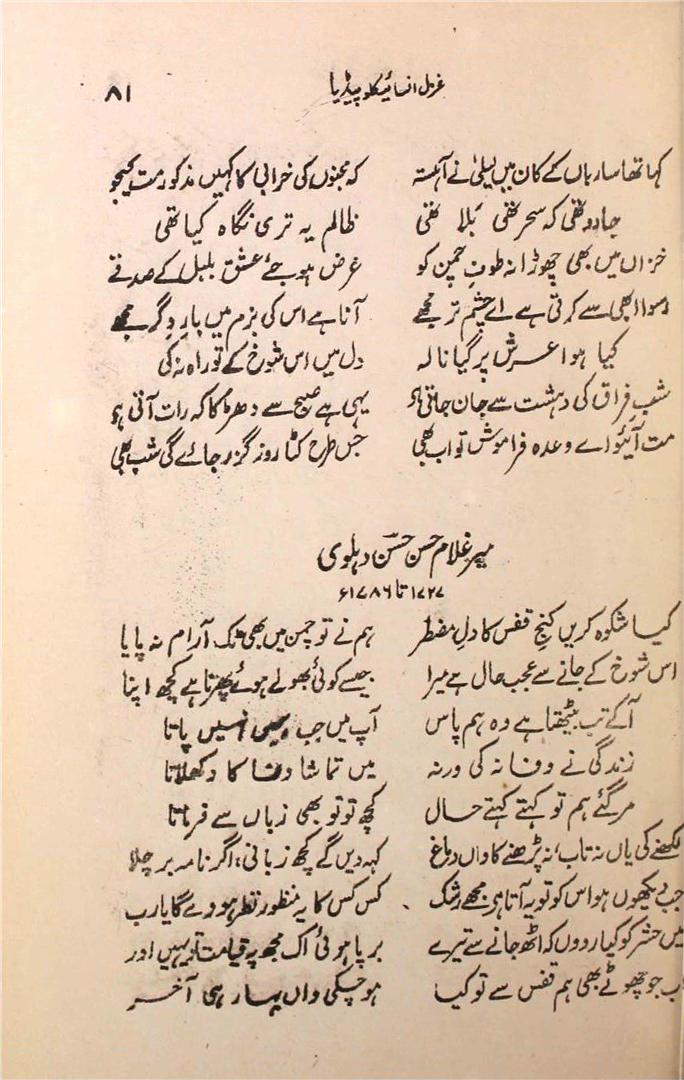 غزل انسائیکلو پیڈیا ۸۱
کہا تھا ساربان کے کان میں لیلیٰ نے آہستہ کہ مجنوں کی خرابی کا کہیں مذکور مت کیجو
جادو تھی کہ سحر تھی بَلا تھی ظالم یہ تری نگاہ کیا تھی
خزاں میں بھی چھوڑا نہ طوفِ چمن کو غرض ہو جئے عشقِ بلبل کے صدقے
رسوا ابھی سے کرتی ہے اے چشمِ تر مجھے آنا ہے اس کی بزم میں بارِ دِگر مجھے
کیا ہوا عرش پر گیا نالہ دل میں اس شوخ کے تو راہ نہ کی
شبِ فراق کی دہشت سے جان جاتی ہے یہی ہے صبح سے دھڑکا کہ رات آتی ہے
مت آئیو اے وعدہ فراموش تو اب بھی جس طرح کٹا روز گزر جائے گی شب بھی
میر غلام حسن حسنؔ دہلوی
۱۷۲۷ تا ۱۷۸۶ء
کیا شکوہ کریں کنجِ قفس کا دلِ مضطر ہم نے تو چمن میں بھی ٹک آرام نہ پایا
اس شوخ کے جانے سے عجب حال ہے میرا جیسے کوئی بھولے ہوئے پھرتا ہے کچھ اپنا
آ کے تب بیٹھتا ہے وہ ہم پاس آپ میں جب ہمیں نہیں پاتا
زندگی نے وفا نہ کی ورنہ میں تماشا وفا کا دکھلاتا
مر گئے ہم تو کہتے کہتے حال کچھ تو تو بھی زباں سے فرماتا
لکھنے کی یاں نہ تاب، نہ پڑھنے کا واں دماغ کہہ دیں گے کچھ زبانی، اگر نامہ بر چلا
جب دیکھوں ہوں اس کو تو یہ آتا ہی مجھے رشک کس کس کا یہ منظورِ نظر ہووے گا یارب
میں حشر کو کیا رووں کہ اٹھ جانے سے تیرے برپا ہوئی اک مجھ پہ قیامت تو یہیں اور
اب جو چھوٹے بھی ہم قفس سے تو کیا ہو چکی واں بہار ہی آخر